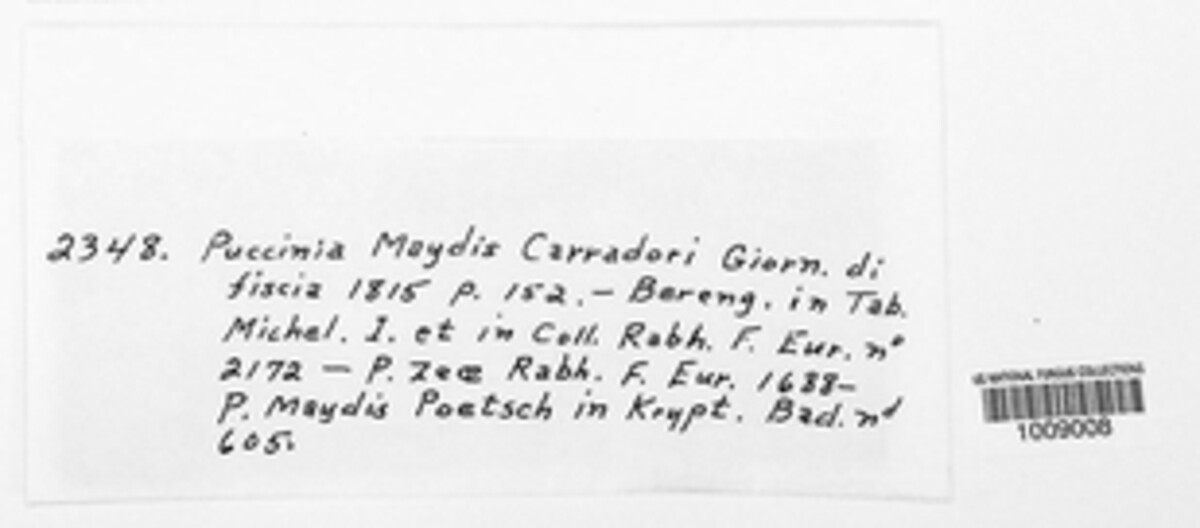 2348. Puccinia Maydis Carradori Giorn. di
fiscia 1815 p. 152. — Bereng. in Tab.
Michel. I. et in Coll. Rabh. F. Eur. nº
2172 — P. Zeæ Rabh. F. Eur. 1688—
P. Maydis Poetsch in Krypt. Bad. nº
605.
US NATIONAL FUNGUS COLLECTIONS
1009008